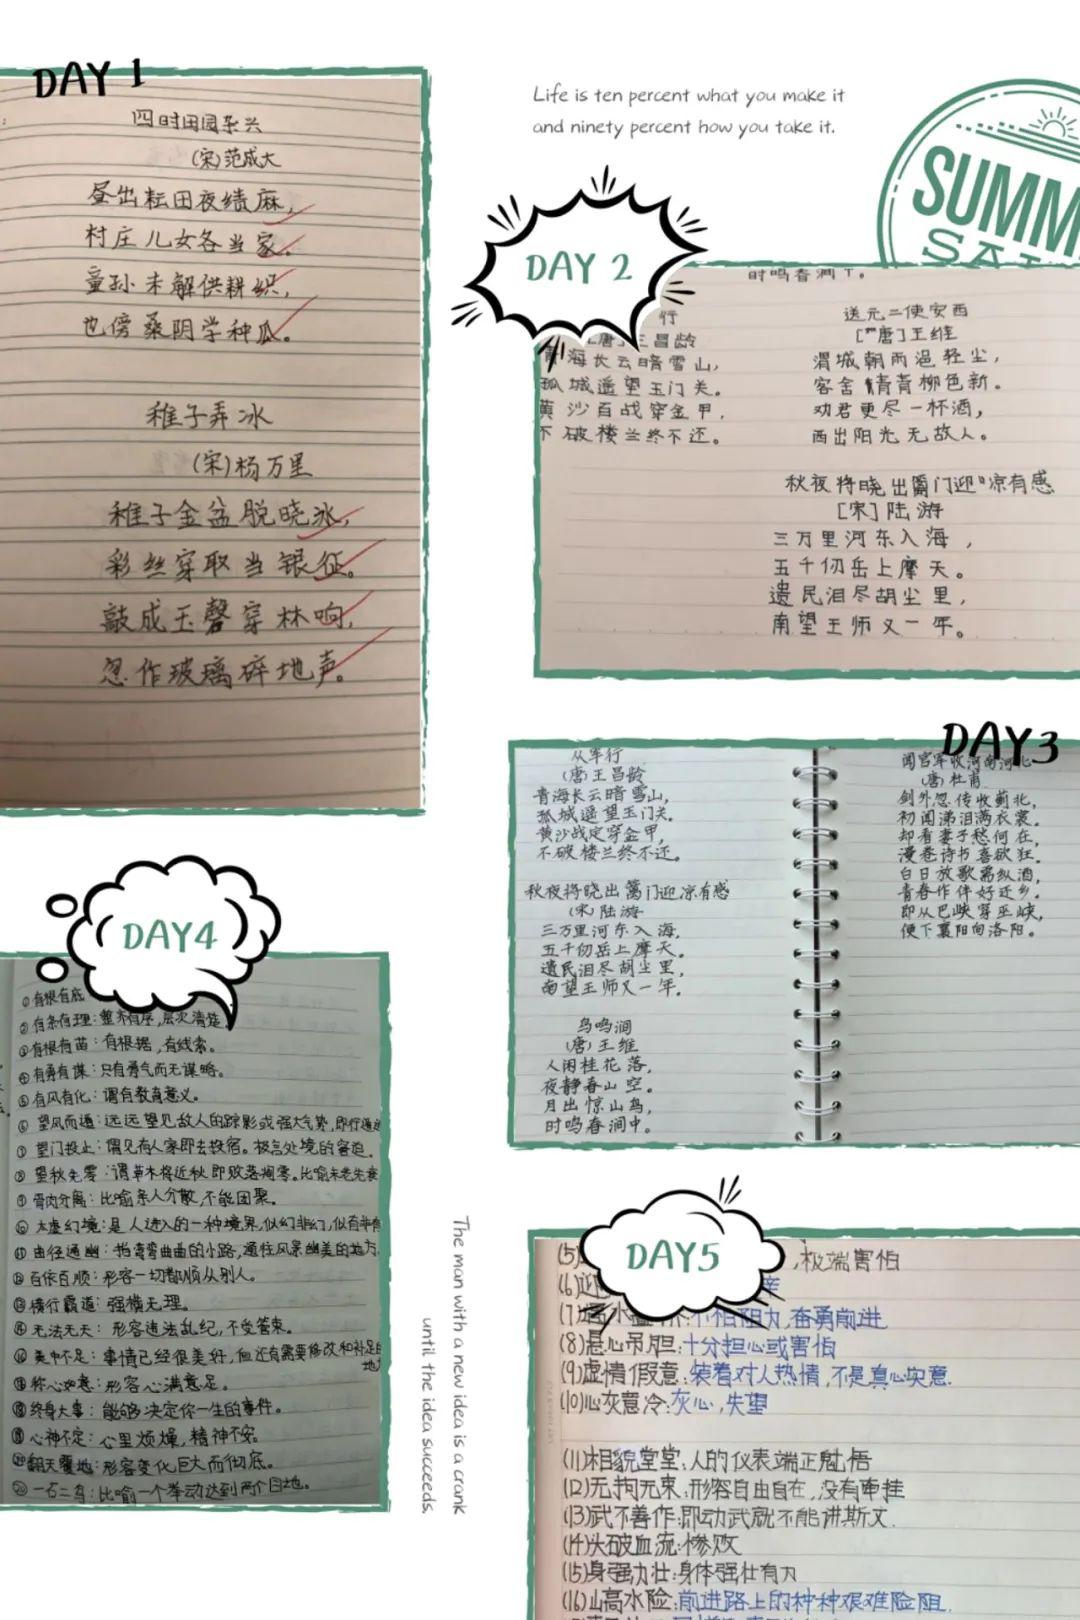 DAY 1
四时田园杂兴
(宋)范成大
昼出耘田夜绩麻,
村庄儿女各当家。
童孙未解供耕织,
也傍桑阴学种瓜。
稚子弄冰
(宋)杨万里
稚子金盆脱晓冰,
彩丝穿取当银征。
敲成玉磬穿林响,
忽作玻璃碎地声。
Life is ten percent what you make it
and ninety percent how you take it.
SUMM
DAY 2
时鸣春涧
行
[唐]王昌龄
海长云暗雪山,
孤城遥望玉门关。
黄沙百战穿金甲,
不破楼兰终不还。
送元二使安西
[唐]王维
渭城朝雨浥轻尘,
客舍青青柳色新。
劝君更尽一杯酒,
西出阳光无故人。
秋夜将晓出篱门迎凉有感
[宋]陆游
三万里河东入海,
五千仞岳上摩天。
遗民泪尽胡尘里,
南望王师又一年。
DAY3
从军行
(唐)王昌龄
青海长云暗雪山,
孤城遥望玉门关。
黄沙战定穿金甲,
不破楼兰终不还。
秋夜将晓出篱门迎凉有感
(宋)陆游
三万里河东入海,
五千仞岳上摩天。
遗民泪尽胡尘里,
南望王师又一年。
鸟鸣涧
(唐)王维
人闲桂花落,
夜静春山空。
月出惊山鸟,
时鸣春涧中。
闻官军收河南河北
(唐)杜甫
剑外忽传收蓟北,
初闻涕泪满衣裳。
却看妻子愁何在,
漫卷诗书喜欲狂。
白日放歌需纵酒,
青春作伴好还乡。
即从巴峡穿巫峡,
便下襄阳向洛阳。
DAY4
①有根有底
②有条有理:整齐有序,层次清楚
③有根有苗:有根据,有线索。
④有勇有谋:只有勇气而无谋略。
⑤有风有化:谓有教育意义。
⑥望风而遁:远远望见敌人的踪影或强大气势,即行
⑦望门投止:谓见有人家即去投宿。极言处境的窘迫
⑧望秋先零:谓草木将近秋即败落凋零。比喻未老先衰
⑨骨肉分离:比喻亲人分散,不能团聚。
⑩太虚幻境:是人进入的一种境界,似幻非幻,似有非有
⑪曲径通幽:指弯弯曲曲的小路,通往风景幽美的地方
⑫百依百顺:形容一切都顺从别人。
⑬横行霸道:强横无理。
⑭无法无天:形容违法乱纪,不受管束。
美中不足:事情已经很美好,但还有需要修改和补足的
地
称心如意:形容心满意足。
终身大事:能够决定你一生的事件。
心神不定:心里烦燥,精神不安。
翻天覆地:形容变化巨大而彻底。
⑳一石二鸟:比喻一个举动达到两个目地。
The man with a new idea is a crank
until the idea succeeds.
DAY5
(5)
,极端害怕
(6)迎
亲
(7)
不怕阻力,奋勇前进
(8)悬心吊胆:十分担心或害怕
(9)虚情假意:装着对人热情,不是真心实意.
(10)心灰意冷:灰心,失望
(11)相貌堂堂:人的仪表端正魁梧
(12)无拘无束:形容自由自在,没有牵挂
(13)武不善作:即动武就不能讲斯文.
(14)头破血流:惨败
(15)身强力壮:身体强壮有力
(16)山高水险:前进路上的种种艰难险阻.